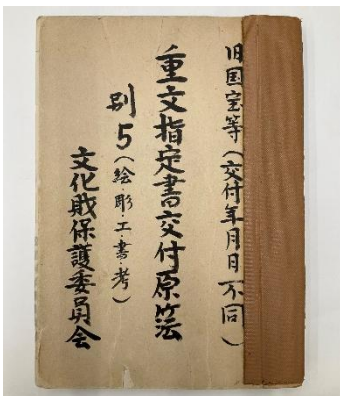 旧国宝等(交付年月日不同)
重文指定書交付原簿
別5(絵・彫・工・書・考)
文化財保護委員会